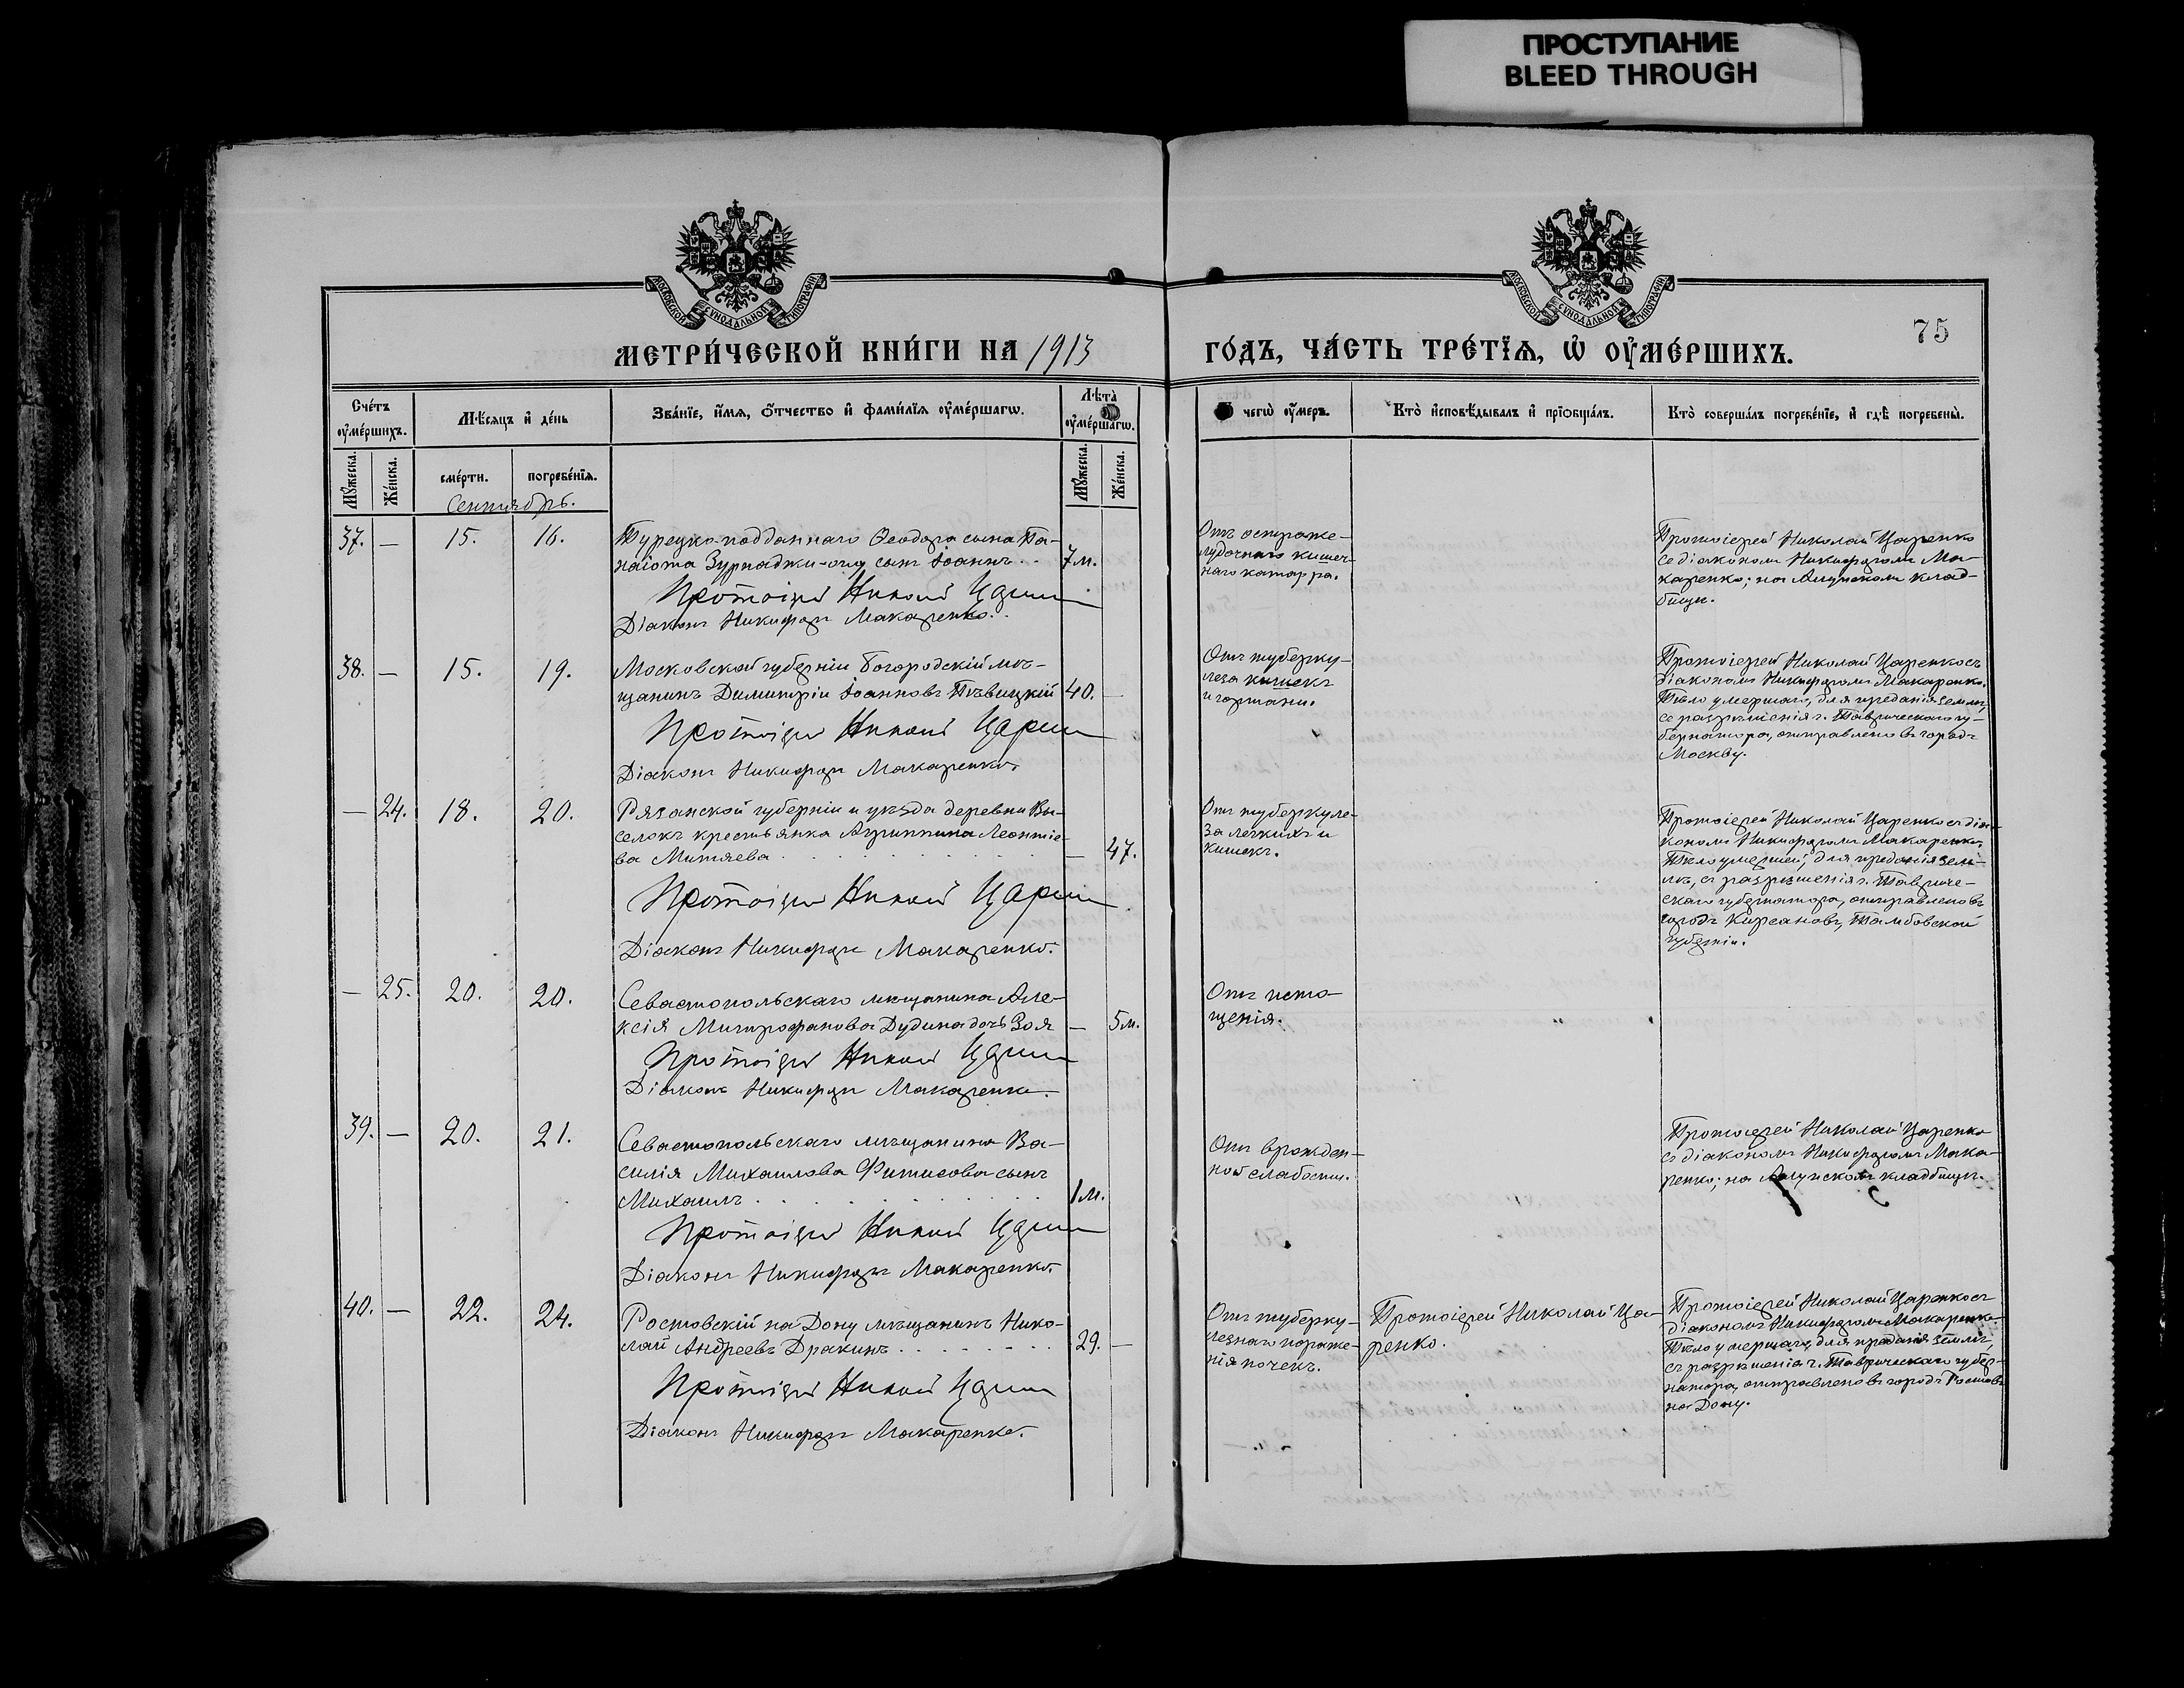 ПРОСТУПАНИЕ
BLEED THROUGH
МОСКОВСКОЙ СѴНОДАЛЬНОЙ ТИПОГРАФІИ
МОСКОВСКОЙ СѴНОДАЛЬНОЙ ТИПОГРАФІИ
75
МЕТРИ́ЧЕСКОЙ КНИ́ГИ НА 1913
ГО́ДЪ, ЧА́СТЬ ТРЕ́ТЇѦ, Ѡ҆ ОУ҆МЕ́РШИХЪ.
Сче́тъ оу҆ме́ршихъ.
Мѣ́сѧцъ и҆ де́нь
Зва́нїе, и҆́мѧ, ѻ҆́тчество и҆ фами́лїѧ оу҆ме́ршагѡ.
Лѣ́та оу҆ме́ршагѡ.
чегѡ̀ оу҆́меръ.
Кто̀ и҆сповѣ́дывалъ и҆ прїѡбща́лъ.
Кто̀ соверша́лъ погребе́нїе, и҆ гдѣ̀ погребены̀.
Мꙋ́жеска.
Же́нска.
сме́рти.
погребе́нїѧ.
Мꙋ́жеска.
Же́нска.
Сентябрь.
37. — 15. 16.
Турецко-подданнаго Ѳеодора сына Па-
наіота Зурнаджи-оглу сынъ Іоаннъ . . 7 м.
Протоіерей Николай Царенко
Діаконъ Никифоръ Макаренко.
Отъ остраже-
лудочнаго кишеч-
наго катарра.
Протоіерей Николай Царенко
съ діакономъ Никифоромъ Ма-
каренко; на Алупскомъ клад-
бищѣ.
38. — 15. 19.
Московской губерніи Богородскій мѣ-
щанинъ Димитрій Іоанновъ Пѣвицкій 40. —
Протоіерей Николай Царенко
Діаконъ Никифоръ Макаренко.
Отъ туберку-
леза кишекъ
и гортани.
Протоіерей Николай Царенко съ
діакономъ Никифоромъ Макаренко.
Тѣло умершаго, для преданія землѣ,
съ разрѣшенія г. Таврическаго гу-
бернатора, отправлено въ городъ
Москву.
— 24. 18. 20.
Рязанской губерніи и уѣзда деревни Вы-
селокъ крестьянка Агриппина Леонтіе-
ва Митяева . . . . — 47.
Протоіерей Николай Царенко
Діаконъ Никифоръ Макаренко.
Отъ туберкуле-
за легкихъ и
кишекъ.
Протоіерей Николай Царенко съ діа-
кономъ Никифоромъ Макаренко.
Тѣло умершей, для преданія зем-
лѣ, съ разрѣшенія г. Тавриче-
скаго губернатора, отправлено въ
городъ Кирсановъ, Тамбовской
губерніи.
— 25. 20. 20.
Севастопольскаго мѣщанина Але-
ксія Митрофанова Дудина дочь Зоя — 5 м.
Протоіерей Николай Царенко
Діаконъ Никифоръ Макаренко.
Отъ исто-
щенія.
39. — 20. 21.
Севастопольскаго мѣщанина Ва-
силія Михаилова Фитисова сынъ
Михаилъ . . . . 1 м.
Протоіерей Николай Царенко
Діаконъ Никифоръ Макаренко.
Отъ врожден-
ной слабости.
Протоіерей Николай Царенко
съ діакономъ Никифоромъ Мака-
ренко; на Алупскомъ кладбищѣ.
40. — 22. 24.
Ростовскій на Дону мѣщанинъ Нико-
лай Андреевъ Дракинъ . . . . 29. —
Протоіерей Николай Царенко
Діаконъ Никифоръ Макаренко.
Отъ туберку-
лезнаго пораже-
нія почекъ.
Протоіерей Николай Ца-
ренко.
Протоіерей Николай Царенко съ
діакономъ Никифоромъ Макаренко.
Тѣло умершаго, для преданія землѣ,
съ разрѣшенія г. Таврическаго губер-
натора, отправлено въ городъ Ростовъ
на Дону.